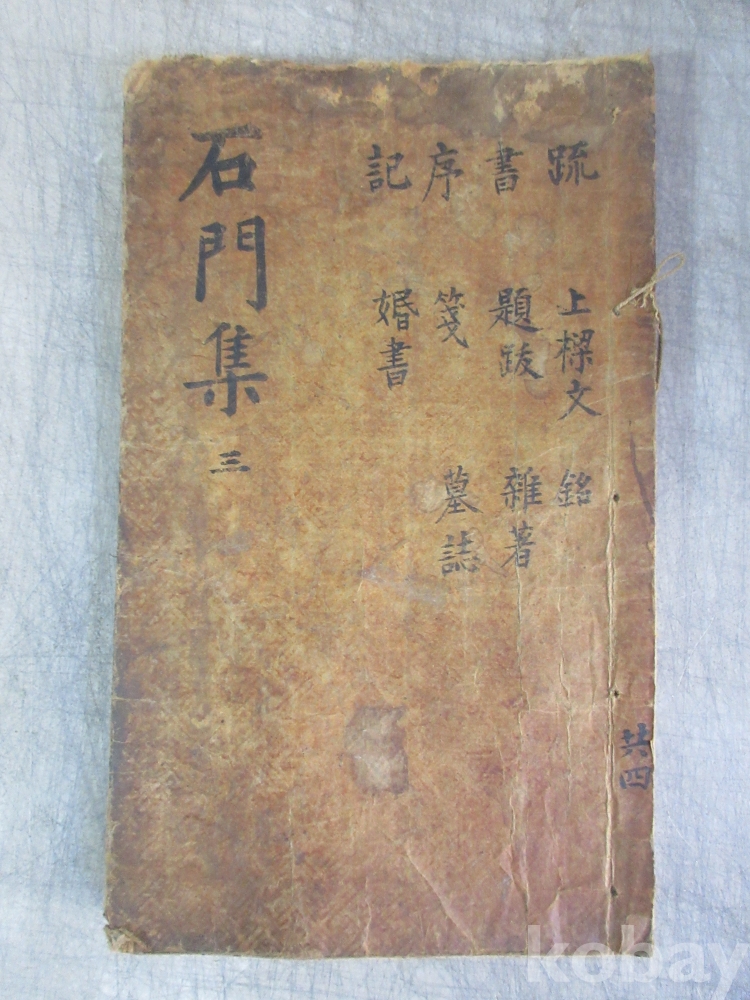 石門集 三
疏 書 序 記
上樑文 題跋 箋 婚書
銘 雜著 墓誌
共四
kobay